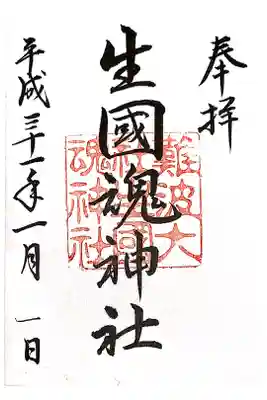 奉拝
生國魂神社
平成三十一年一月一日
難波大
社生國
魂神社